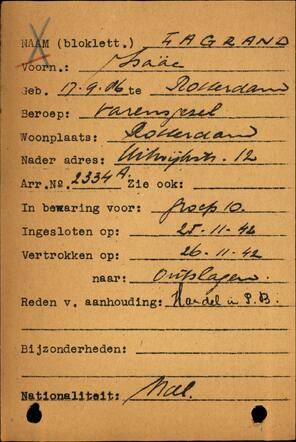 NAAM (bloklett.) FAGRAND
Voorn.: Isäac
Geb. 17.9.06 te Rotterdam
Beroep: varensgezel
Woonplaats: Rotterdam
Nader adres: 12
Arr.No. 2334 A. Zie ook:
In bewaring voor: groep 10.
Ingesloten op: 25-11-42
Vertrokken op: 26-11-42
naar: Ontslagen.
Reden v. aanhouding: Handel in P.B.
Bijzonderheden:
Nationaliteit: Ned.